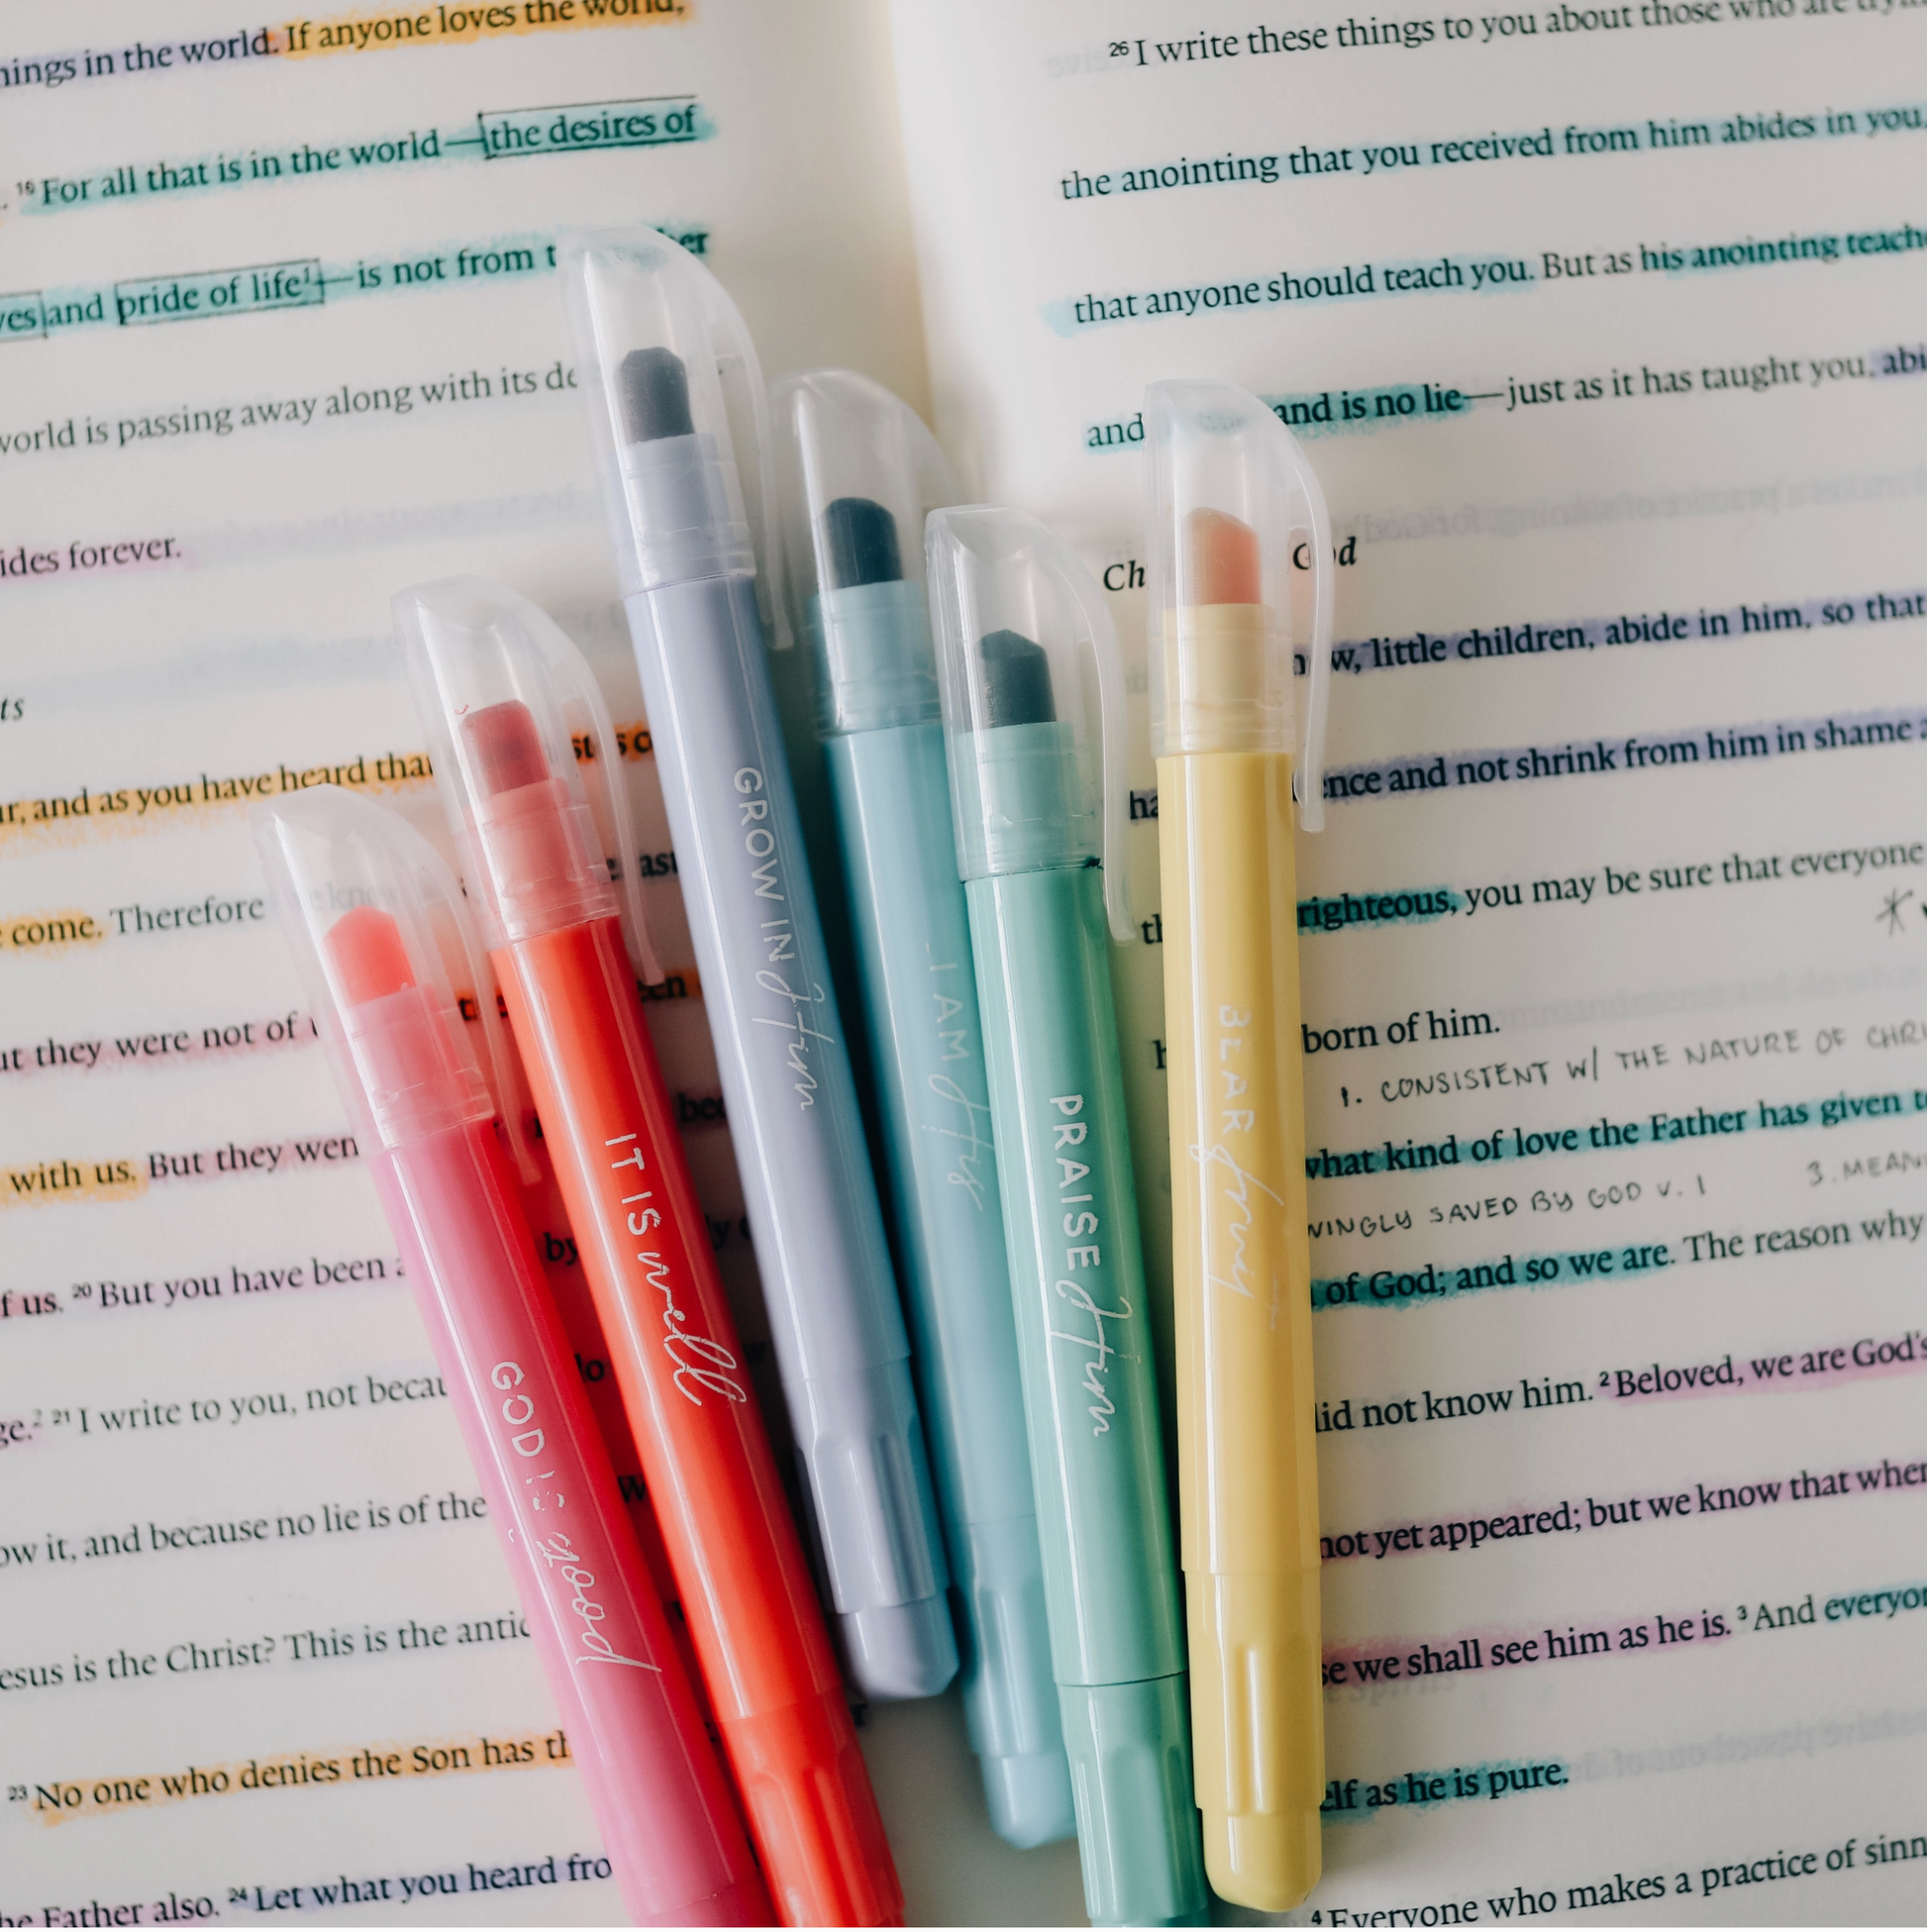 in the world. If anyone loves the world,
16 For all that is in the world—the desires of
and pride of life1—is not from
world is passing away along with its
forever.
and as you have heard that
come. Therefore
they were not of
with us. But they
us. 20 But you have been
2 21 I write to you, not
it, and because no lie is of the
is the Christ? This is the
23 No one who denies the Son has
Father also. 24 Let what you heard
26 I write these things to you about those who are
the anointing that you received from him abides in you,
that anyone should teach you. But as his anointing
and and is no lie—just as it has taught you,
God
little children, abide in him, so that
and not shrink from him in shame
righteous, you may be sure that everyone
born of him.
1. CONSISTENT W/ THE NATURE OF
what kind of love the Father has given
SAVED BY GOD V. 1 3.
of God; and so we are. The reason why
did not know him. 2 Beloved, we are God's
not yet appeared; but we know that when
we shall see him as he is. 3 And
as he is pure.
4 Everyone who makes a practice of
GOD IS good
IT IS well
GROW IN Him
I AM His
PRAISE Him
BEAR fruit